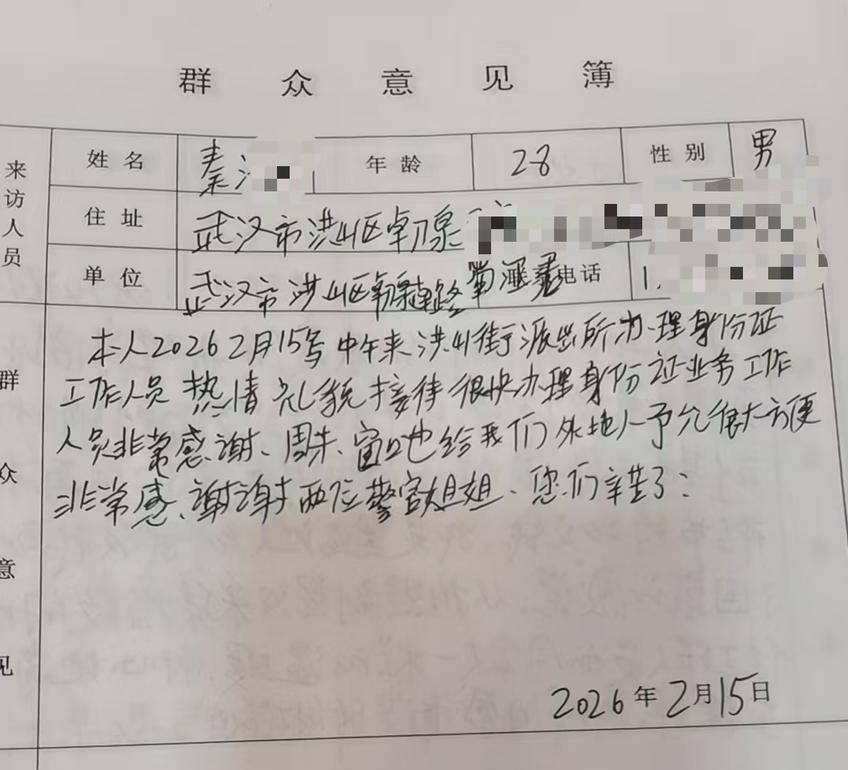 群众意见簿
来访人员
姓名 秦 年龄 28 性别 男
住址 武汉市洪山区卓刀泉
单位 武汉市洪山区卓刀泉南路 电话 1
群众意见
本人2026 2月15号中午来洪山街派出所办理身份证
工作人员热情礼貌接待很快办理身份证业务工作
人员非常感谢、周末、窗口也给我们外地人予允很大方便
非常感、谢谢两位警官姐姐、您们辛苦了:
2026年2月15日